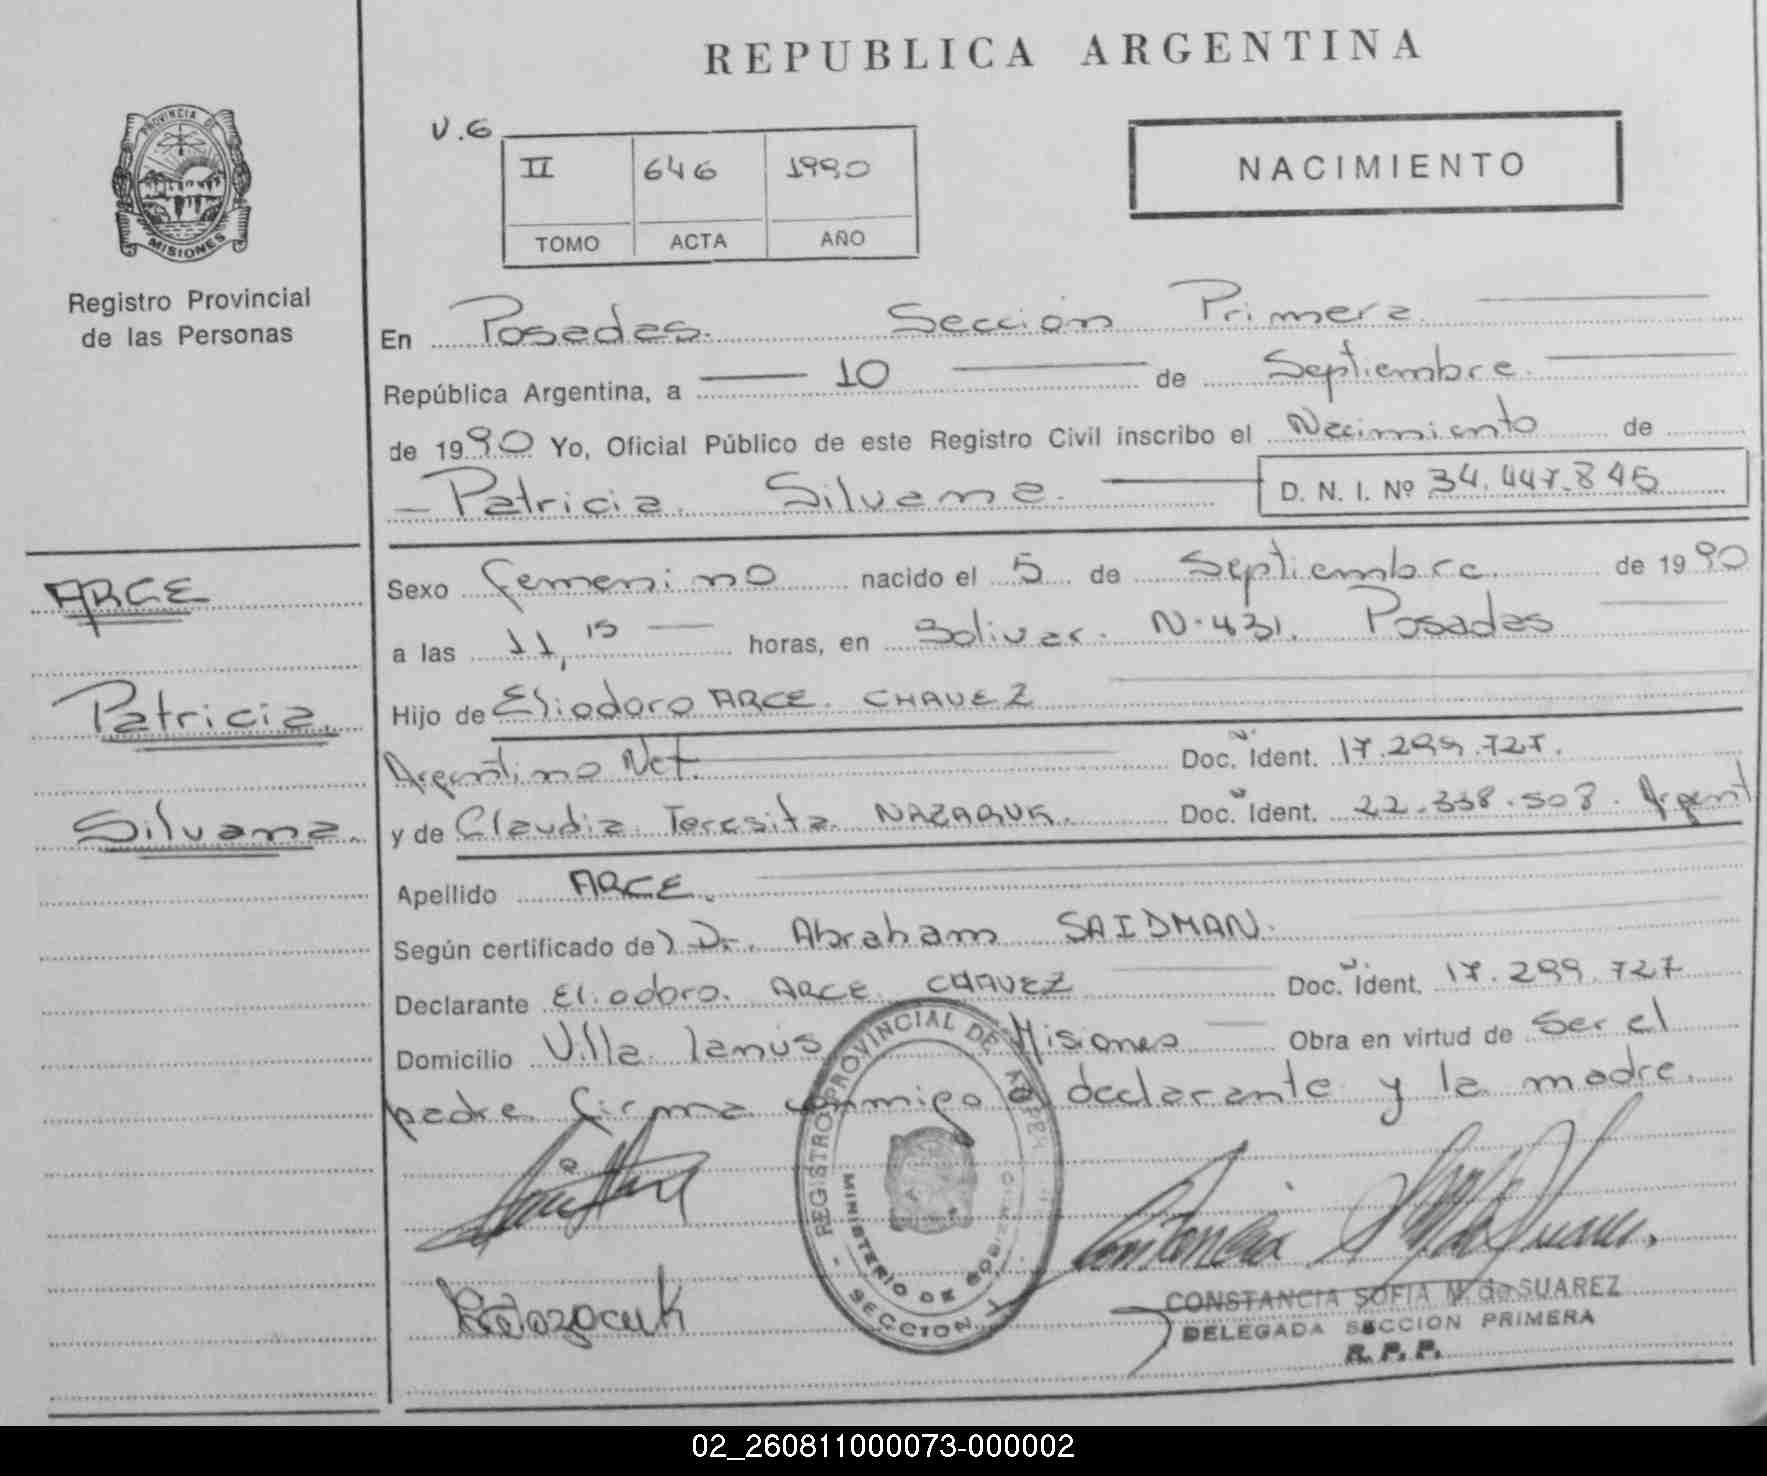 REPUBLICA ARGENTINA
PROVINCIA DE
MISIONES
Registro Provincial
de las Personas
V.G
II 646 1990
TOMO ACTA AÑO
NACIMIENTO
En Posadas. Sección Primera
República Argentina, a 10 de Septiembre.
de 1990 Yo, Oficial Público de este Registro Civil inscribo el Nacimiento de
Patricia Silvana. D. N. I. Nº 34.447.845
ARCE
Patricia
Silvana.
Sexo femenino nacido el 5 de Septiembre de 1990
a las 11,15 horas, en Bolivar. N. 431. Posadas
Hijo de Eliodoro ARCE CHAVEZ
Argentino Nat. Doc. Ident. 17.299.727.
y de Claudia Teresita Doc. Ident. 22.338.508. Argent
Apellido ARCE.
Según certificado de) Dr. Abraham SAIDMAN.
Declarante Eliodoro. ARCE CHAVEZ Doc. Ident. 17.299.727
Domicilio Villa Lanús Misiones Obra en virtud de Ser el
padre firma conmigo el declarante y la madre.
REGISTRO PROVINCIAL DE
MINISTERIO DE GOBIERNO
SECCION
CONSTANCIA SOFIA M. de SUAREZ
DELEGADA SECCION PRIMERA
R. P. P.
02_260811000073-000002